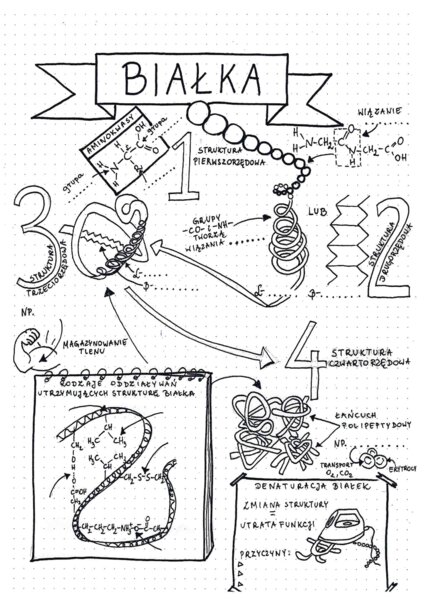 BIAŁKA
AMINOKWASY
grupa
grupa
1
STRUKTURA
PIERWSZORZĘDOWA
WIĄZANIE
3
STRUKTURA
TRZECIORZĘDOWA
GRUPY
-CO- i -NH-
TWORZĄ
WIĄZANIA
LUB
2
STRUKTURA
DRUGORZĘDOWA
NP.
MAGAZYNOWANIE
TLENU
4
STRUKTURA
CZWARTORZĘDOWA
RODZAJE ODDZIAŁYWAŃ
UTRZYMUJĄCYCH STRUKTURĘ BIAŁKA
ŁAŃCUCH
POLIPEPTYDOWY
NP.
TRANSPORT
O₂, CO₂
DENATURACJA BIAŁEK
ZMIANA STRUKTURY
=
UTRATA FUNKCJI
PRZYCZYNY: